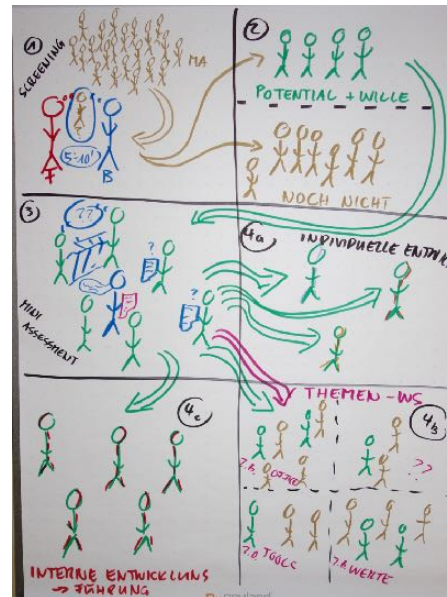 1
SCREENING
MA
F
5-10'
B
2
POTENTIAL + WILLE
NOCH NICHT
3
??
?
?
MINI ASSESSMENT
4a
INDIVIDUELLE
THEMEN-WS
4b
??
z.B. TOOLS
z.B. WERTE
4c
INTERNE ENTWICKLUNG
→ FÜHRUNG